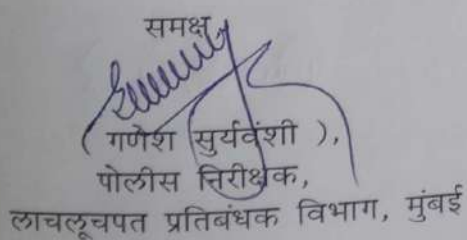 समक्ष
( गणेश सुर्यवंशी ),
पोलीस निरीक्षक,
लाचलूचपत प्रतिबंधक विभाग, मुंबई